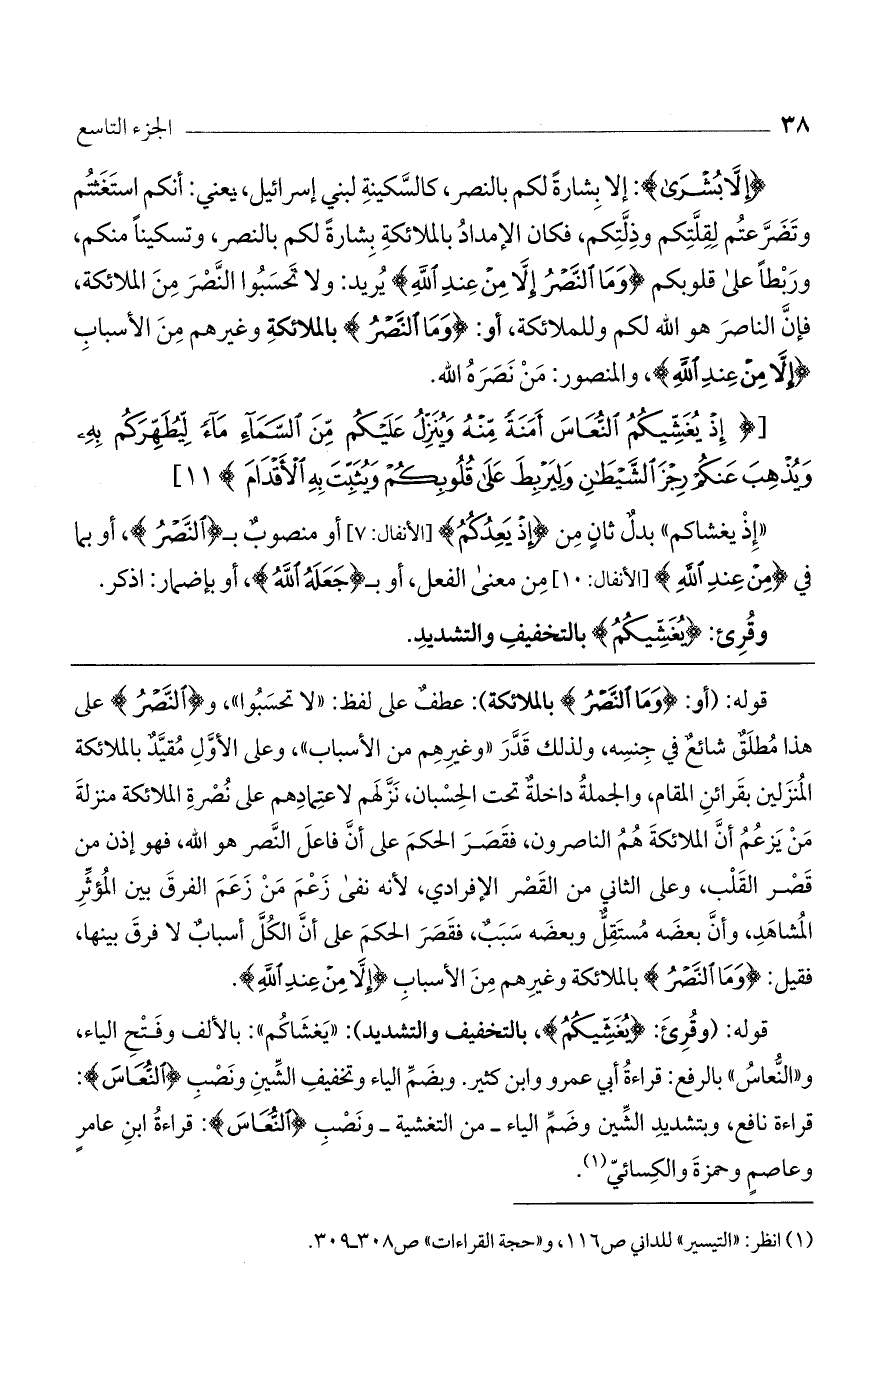 ٣٨ ــــــــــــــــ الجزء التاسع
﴿إِلَّا بُشْرَىٰ﴾: إلا بِشارةً لكم بالنصر، كالسَّكينةِ لبني إسرائيل، يعني: أنكم استَغَثتُم
وتَضَرَّعتُم لِقِلَّتِكم وذِلَّتِكم، فكان الإمدادُ بالملائكةِ بِشارةً لكم بالنصر، وتسكيناً منكم،
ورَبْطاً علىٰ قلوبكم ﴿وَمَا ٱلنَّصْرُ إِلَّا مِنْ عِندِ ٱللَّهِ﴾ يُريد: ولا تَحسَبُوا النَّصْرَ مِنَ الملائكة،
فإنَّ الناصرَ هو الله لكم وللملائكة، أو: ﴿وَمَا ٱلنَّصْرُ﴾ بالملائكةِ وغيرهم مِنَ الأسبابِ
﴿إِلَّا مِنْ عِندِ ٱللَّهِ﴾، والمنصور: مَنْ نَصَرَهُ الله.
[﴿إِذْ يُغَشِّيكُمُ ٱلنُّعَاسَ أَمَنَةً مِّنْهُ وَيُنَزِّلُ عَلَيْكُم مِّنَ ٱلسَّمَآءِ مَآءً لِّيُطَهِّرَكُم بِهِۦ
وَيُذْهِبَ عَنكُمْ رِجْزَ ٱلشَّيْطَٰنِ وَلِيَرْبِطَ عَلَىٰ قُلُوبِكُمْ وَيُثَبِّتَ بِهِ ٱلْأَقْدَامَ﴾ ١١]
«إِذْ يغشاكم» بدلٌ ثانٍ مِن ﴿إِذْ يَعِدُكُمُ﴾ [الأنفال: ٧] أو منصوبٌ بـ﴿ٱلنَّصْرُ﴾، أو بما
في ﴿مِنْ عِندِ ٱللَّهِ﴾ [الأنفال: ١٠] مِن معنىٰ الفعل، أو بـ﴿جَعَلَهُ ٱللَّهُ﴾، أو بإضمار: اذكر.
وقُرِئ: ﴿يُغَشِّيكُمُ﴾ بالتخفيفِ والتشديدِ.
قوله: (أو: ﴿وَمَا ٱلنَّصْرُ﴾ بالملائكة): عطفٌ على لفظ: «لا تحسَبُوا»، و﴿ٱلنَّصْرُ﴾ على
هذا مُطلَقٌ شائعٌ في جِنسِه، ولذلك قَدَّرَ «وغيرِهم من الأسباب»، وعلى الأوَّلِ مُقيَّدٌ بالملائكة
المُنزَلين بقَرائنِ المقام، والجملةُ داخلةٌ تحت الحِسْبان، نَزَّلَهم لاعتِمادِهم على نُصْرةِ الملائكة منزلةَ
مَنْ يَزعُمُ أنَّ الملائكةَ هُمُ الناصرون، فقَصَرَ الحكمَ على أنَّ فاعلَ النَّصر هو الله، فهو إذن من
قَصْرِ القَلْب، وعلى الثاني من القَصْر الإفرادي، لأنه نفىٰ زَعْمَ مَنْ زَعَمَ الفرقَ بين المُؤثِّرِ
المُشاهَدِ، وأنَّ بعضَه مُستَقِلٌّ وبعضَه سَبَبٌ، فقَصَرَ الحكمَ على أنَّ الكُلَّ أسبابٌ لا فرقَ بينها،
فقيل: ﴿وَمَا ٱلنَّصْرُ﴾ بالملائكة وغيرِهم مِنَ الأسبابِ ﴿إِلَّا مِنْ عِندِ ٱللَّهِ﴾.
قوله: (وقُرِئَ: ﴿يُغَشِّيكُمُ﴾، بالتخفيف والتشديد): «يَغشَاكُم»: بالألف وفَتْحِ الياء،
و«النُّعاسُ» بالرفع: قراءةُ أبي عمرو وابن كثير. وبضَمِّ الياء وتخفيفِ الشِّينِ ونَصْبِ ﴿ٱلنُّعَاسَ﴾:
قراءة نافع، وبتشديدِ الشِّين وضَمِّ الياء ـ من التغشية ـ ونَصْبِ ﴿ٱلنُّعَاسَ﴾: قراءةُ ابنِ عامرٍ
وعاصمٍ وحمزةَ والكِسائيّ(١).
(١) انظر: «التيسير» للداني ص١١٦، و«حجة القراءات» ص٣٠٨ـ٣٠٩.